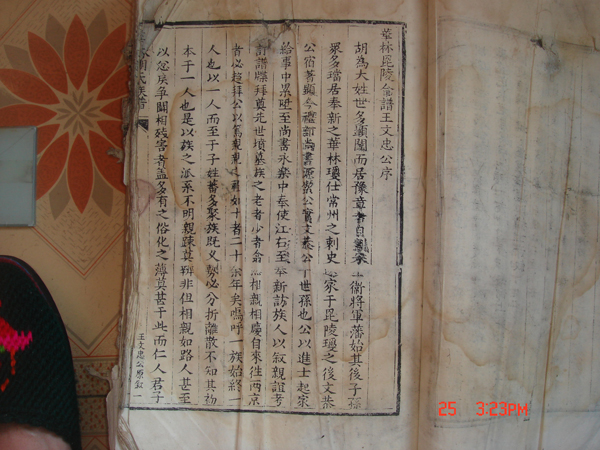 華林毘陵合譜王文忠公序
胡為大姓世多顯閥而居豫章者自 衛將軍藩始其後子孫
眾多璫居奉新之華林瓊仕常州之刺史 家于毘陵瓊之後文恭
公宿著顯今禮部尚書源潔公實文恭公十世孫也公以進士起家
給事中累陞至尚書永樂中奉使江右至奉新訪族人以敘親誼考
訂譜牒拜奠先世墳墓族之老者少者僉 相親相慶自來往兩京
者必趨拜公以篤親親之 如十者二十餘年矣嗚呼一族始終一
人也以一人而至于子姓蕃多聚族既義勢必分折離散不知其初
本于一人也是以族之派系不明親踈莫辨非但相親如路人甚至
以忿疾爭鬪相殘害者蓋多有之俗化之薄莫甚于此而仁人君子
王文忠公原敘 一
氏族譜
25 3:23PM